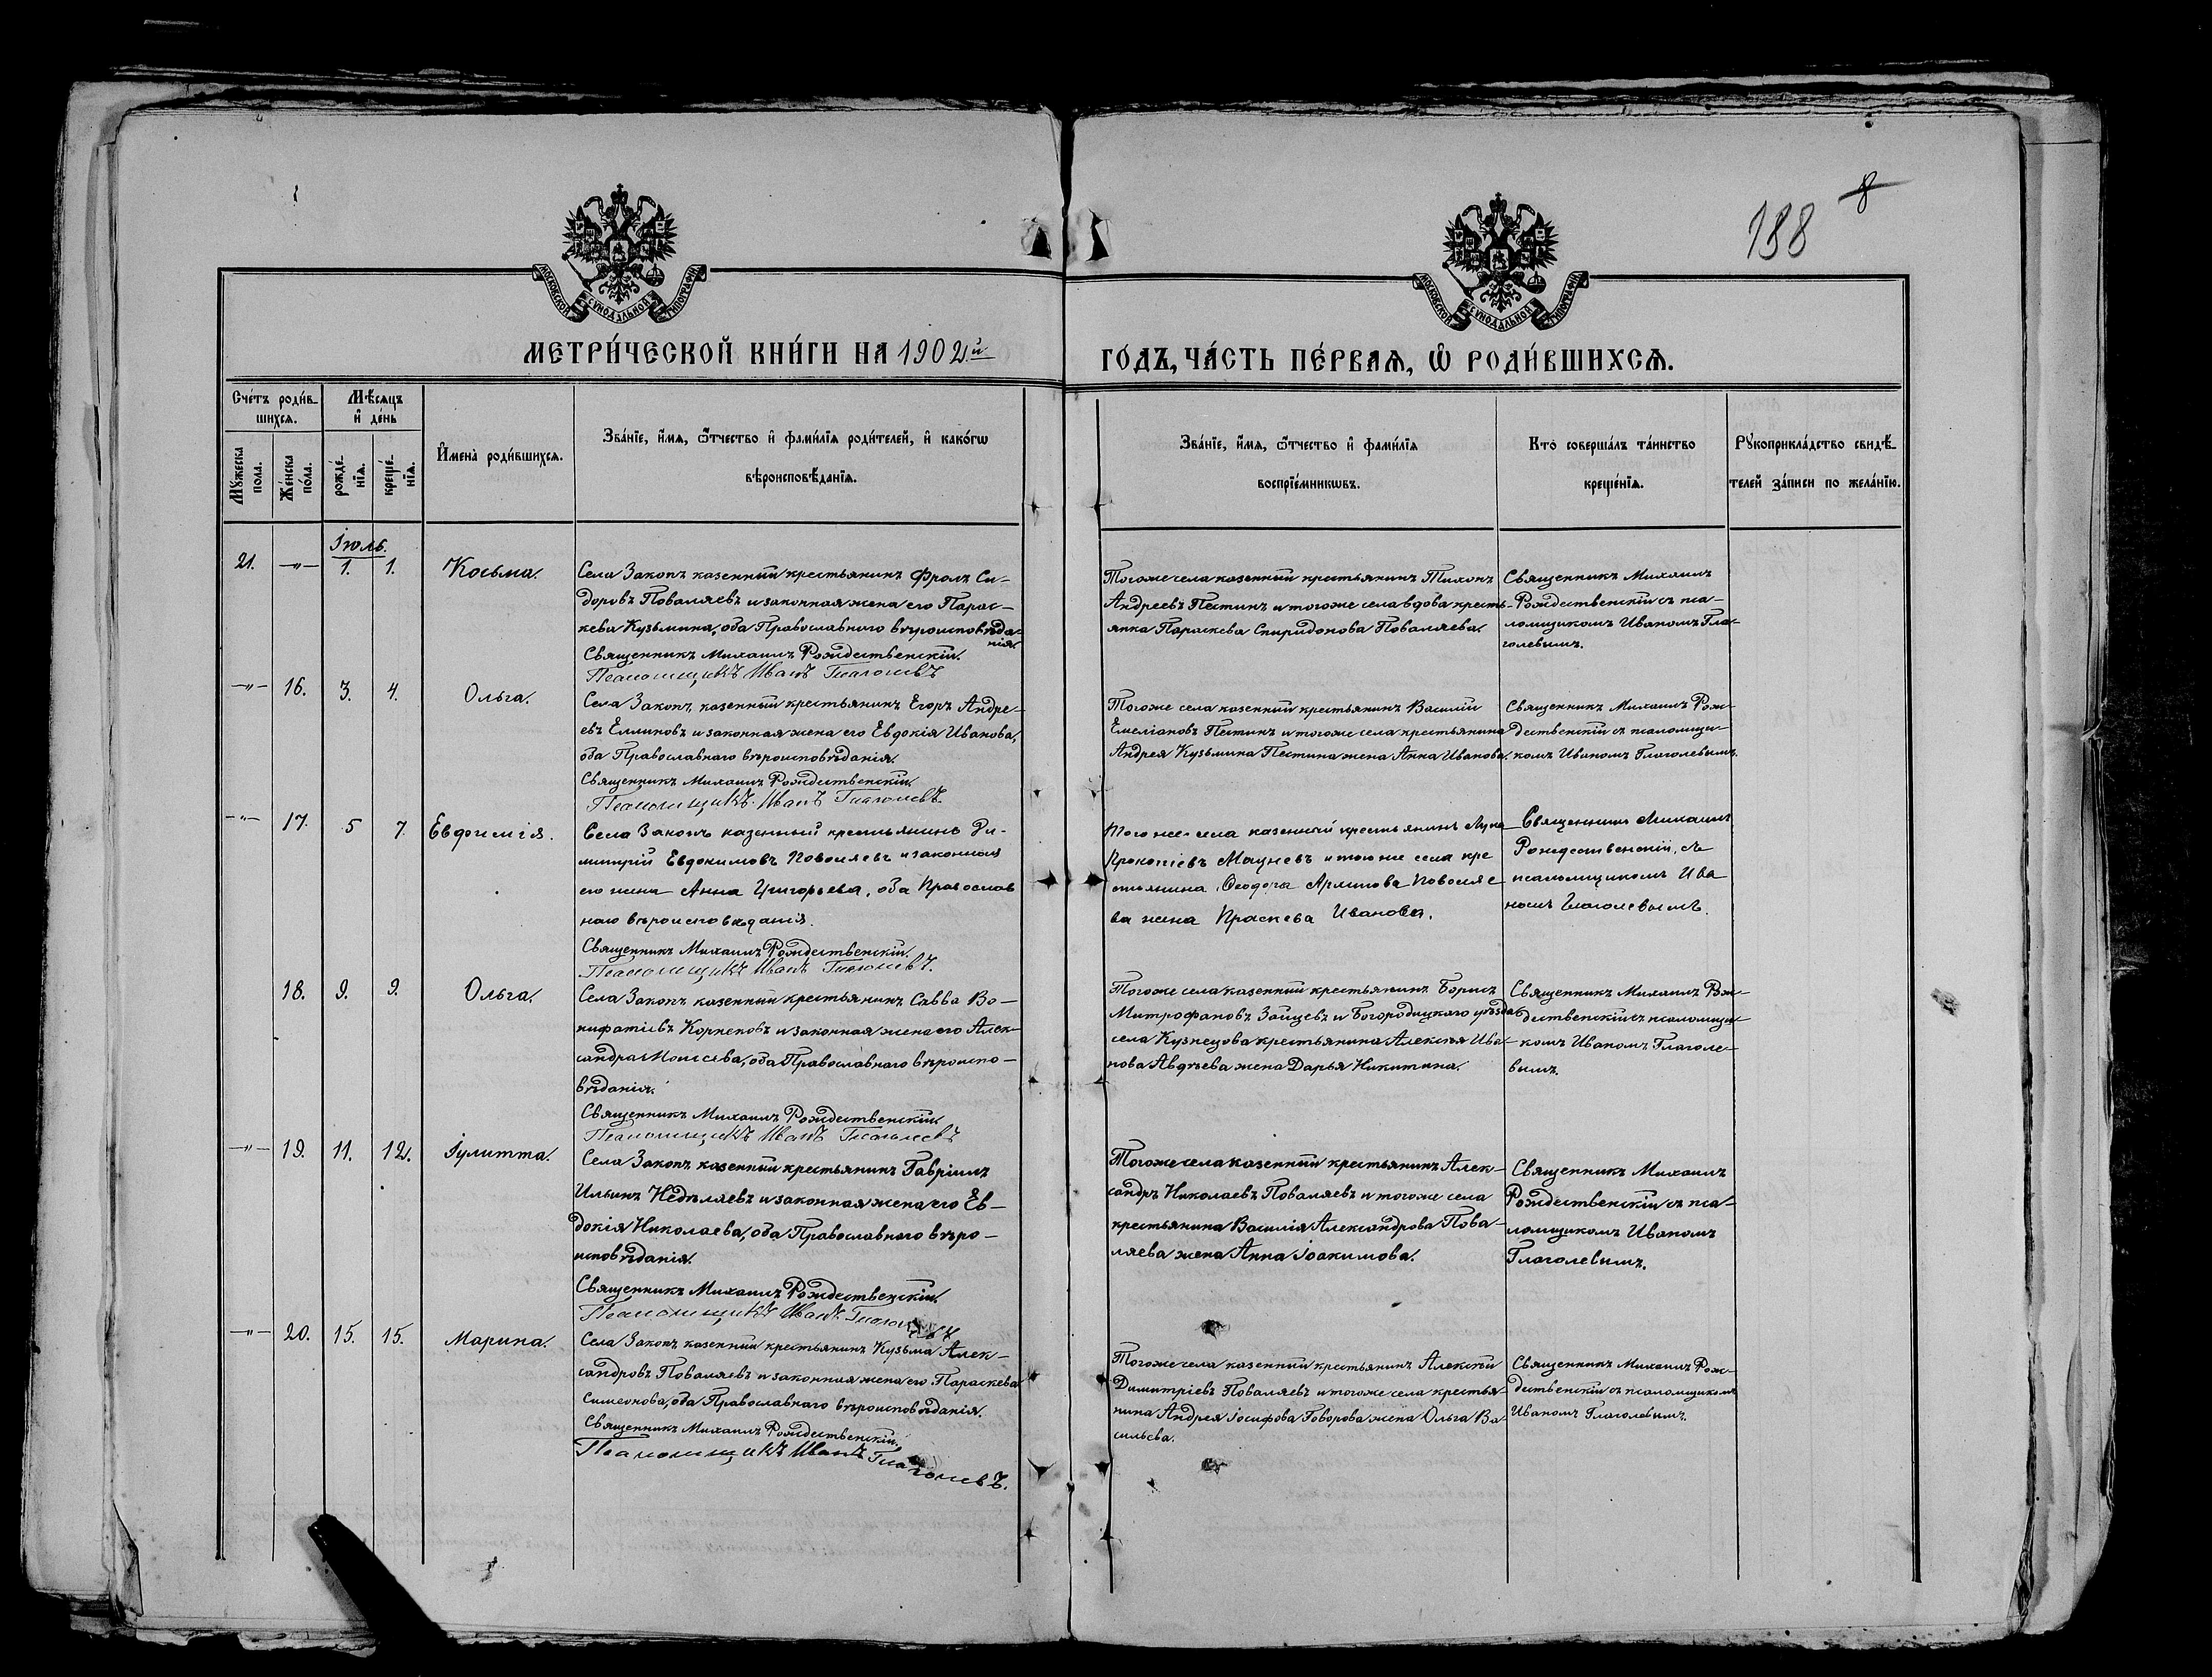 188 8
МОСКОВСКОЙ СѴНОДАЛЬНОЙ ТИПОГРАФІИ
МОСКОВСКОЙ СѴНОДАЛЬНОЙ ТИПОГРАФІИ
МЕТРИ́ЧЕСКОЙ КНИ́ГИ НА 1902й
ГО́ДЪ, ЧА́СТЬ ПЕ́РВАѦ, Ѽ РОДИ́ВШИХСѦ.
Сче́тъ роди́в-
шихсѧ.
Мѣ́сѧцъ
и҆ де́нь
Мꙋ́жеска
пола.
Же́нска
по́ла.
рожде́-
нїѧ.
креще́-
нїѧ.
И҆мена̀ роди́вшихсѧ.
Зва́нїе, и҆́мѧ, ѻ҆́тчество и҆ фами́лїѧ роди́телей, и҆ како́гѡ
вѣроисповѣ́данїѧ.
Зва́нїе, и҆́мѧ, ѻ҆́тчество и҆ фами́лїѧ
воспрїе́мникѡвъ.
Кто̀ соверша́лъ та́инство
креще́нїѧ.
Рꙋкоприкла́дство свидѣ́-
телей за́писи по жела́нїю.
Іюль.
21. —"— 1. 1. Косьма.
Села Закопъ казенный крестьянинъ Фролъ Си-
доровъ Поваляевъ и законная жена его Парас-
кева Кузьмина, оба Православнаго вѣроисповѣда-
нія.
Священникъ Михаилъ Рождественскій.
Псаломщикъ Иванъ Глаголевъ
Тогоже села казенный крестьянинъ Тихонъ
Андреевъ Пестинъ и тогоже села вдова кресть-
янка Параскева Спиридонова Поваляева.
Священникъ Михаилъ
Рождественскій съ пса-
ломщикомъ Иваномъ Гла-
голевымъ.
—"— 16. 3. 4. Ольга.
Села Закопъ казенный крестьянинъ Егоръ Андре-
евъ Еллиновъ и законная жена его Евдокія Иванова,
оба Православнаго вѣроисповѣданія.
Священникъ Михаилъ Рождественскій.
Псаломщикъ Иванъ Глаголевъ.
Тогоже села казенный крестьянинъ Василій
Емеліановъ Пестинъ и тогоже села крестьянина
Андрея Кузьмина Пестина жена Анна Иванова.
Священникъ Михаилъ Рож-
дественскій съ псаломщи-
комъ Иваномъ Глаголевымъ.
—"— 17. 5 7 Евфимія.
Села Закопъ казенный крестьянинъ Ди-
митрій Евдокимовъ Поваляевъ и законная
его жена Анна Григорьева, оба Православ
наго вѣроисповѣданія.
Священникъ Михаилъ Рождественскій.
Псаломщикъ Иванъ Глаголевъ.
Того же села казенный крестьянинъ Лука
Прокопіевъ Мацневъ и того же села кре
стьянина Ѳеодора Поваляе
ва жена Праскева Иванова.
Священникъ Михаилъ
Рождественскій, съ
псаломщикомъ Ива
номъ Глаголевымъ.
18. 9. 9. Ольга.
Села Закопъ казенный крестьянинъ Савва Во-
нифатіевъ Корнеповъ и законная жена его Алек-
сандра Моисеева, оба Православнаго вѣроиспо-
вѣданія.
Священникъ Михаилъ Рождественскій
Псаломщикъ Иванъ Глаголевъ
Тогоже села казенный крестьянинъ Борисъ
Митрофановъ Зайцевъ и Богородицкаго уѣзда
села Кузнецова крестьянина Алексѣя Ива-
нова Авдѣева жена Дарья Никитина.
Священникъ Михаилъ Рож-
дественскій съ псаломщи-
комъ Иваномъ Глаголе-
вымъ.
—"— 19. 11. 12. Іулитта.
Села Закопъ казенный крестьянинъ Гавріилъ
Ильинъ Недѣляевъ и законная жена его Ев-
докія Николаева, оба Православнаго вѣро-
исповѣданія.
Священникъ Михаилъ Рождественскій.
Псаломщикъ Иванъ Глаголевъ
Тогоже села казенный крестьянинъ Алек-
сандръ Николаевъ Поваляевъ и тогоже села
крестьянина Василія Александрова Пова-
ляева жена Анна Іоакимова.
Священникъ Михаилъ
Рождественскій съ пса-
ломщикомъ Иваномъ
Глаголевымъ.
—"— 20. 15. 15. Марина.
Села Закопъ казенный крестьянинъ Кузьма Алек-
сандровъ Поваляевъ и законная жена его Параскева
Симеонова, оба Православнаго вѣроисповѣданія.
Священникъ Михаилъ Рождественскій.
Псаломщикъ Иванъ Глаголевъ.
Тогоже села казенный крестьянинъ Алексѣй
Димитріевъ Поваляевъ и тогоже села крестья-
нина Андрея Іосифова Говорова жена Ольга Ва-
сильева.
Священникъ Михаилъ Рож-
дественскій съ псаломщикомъ
Иваномъ Глаголевымъ.